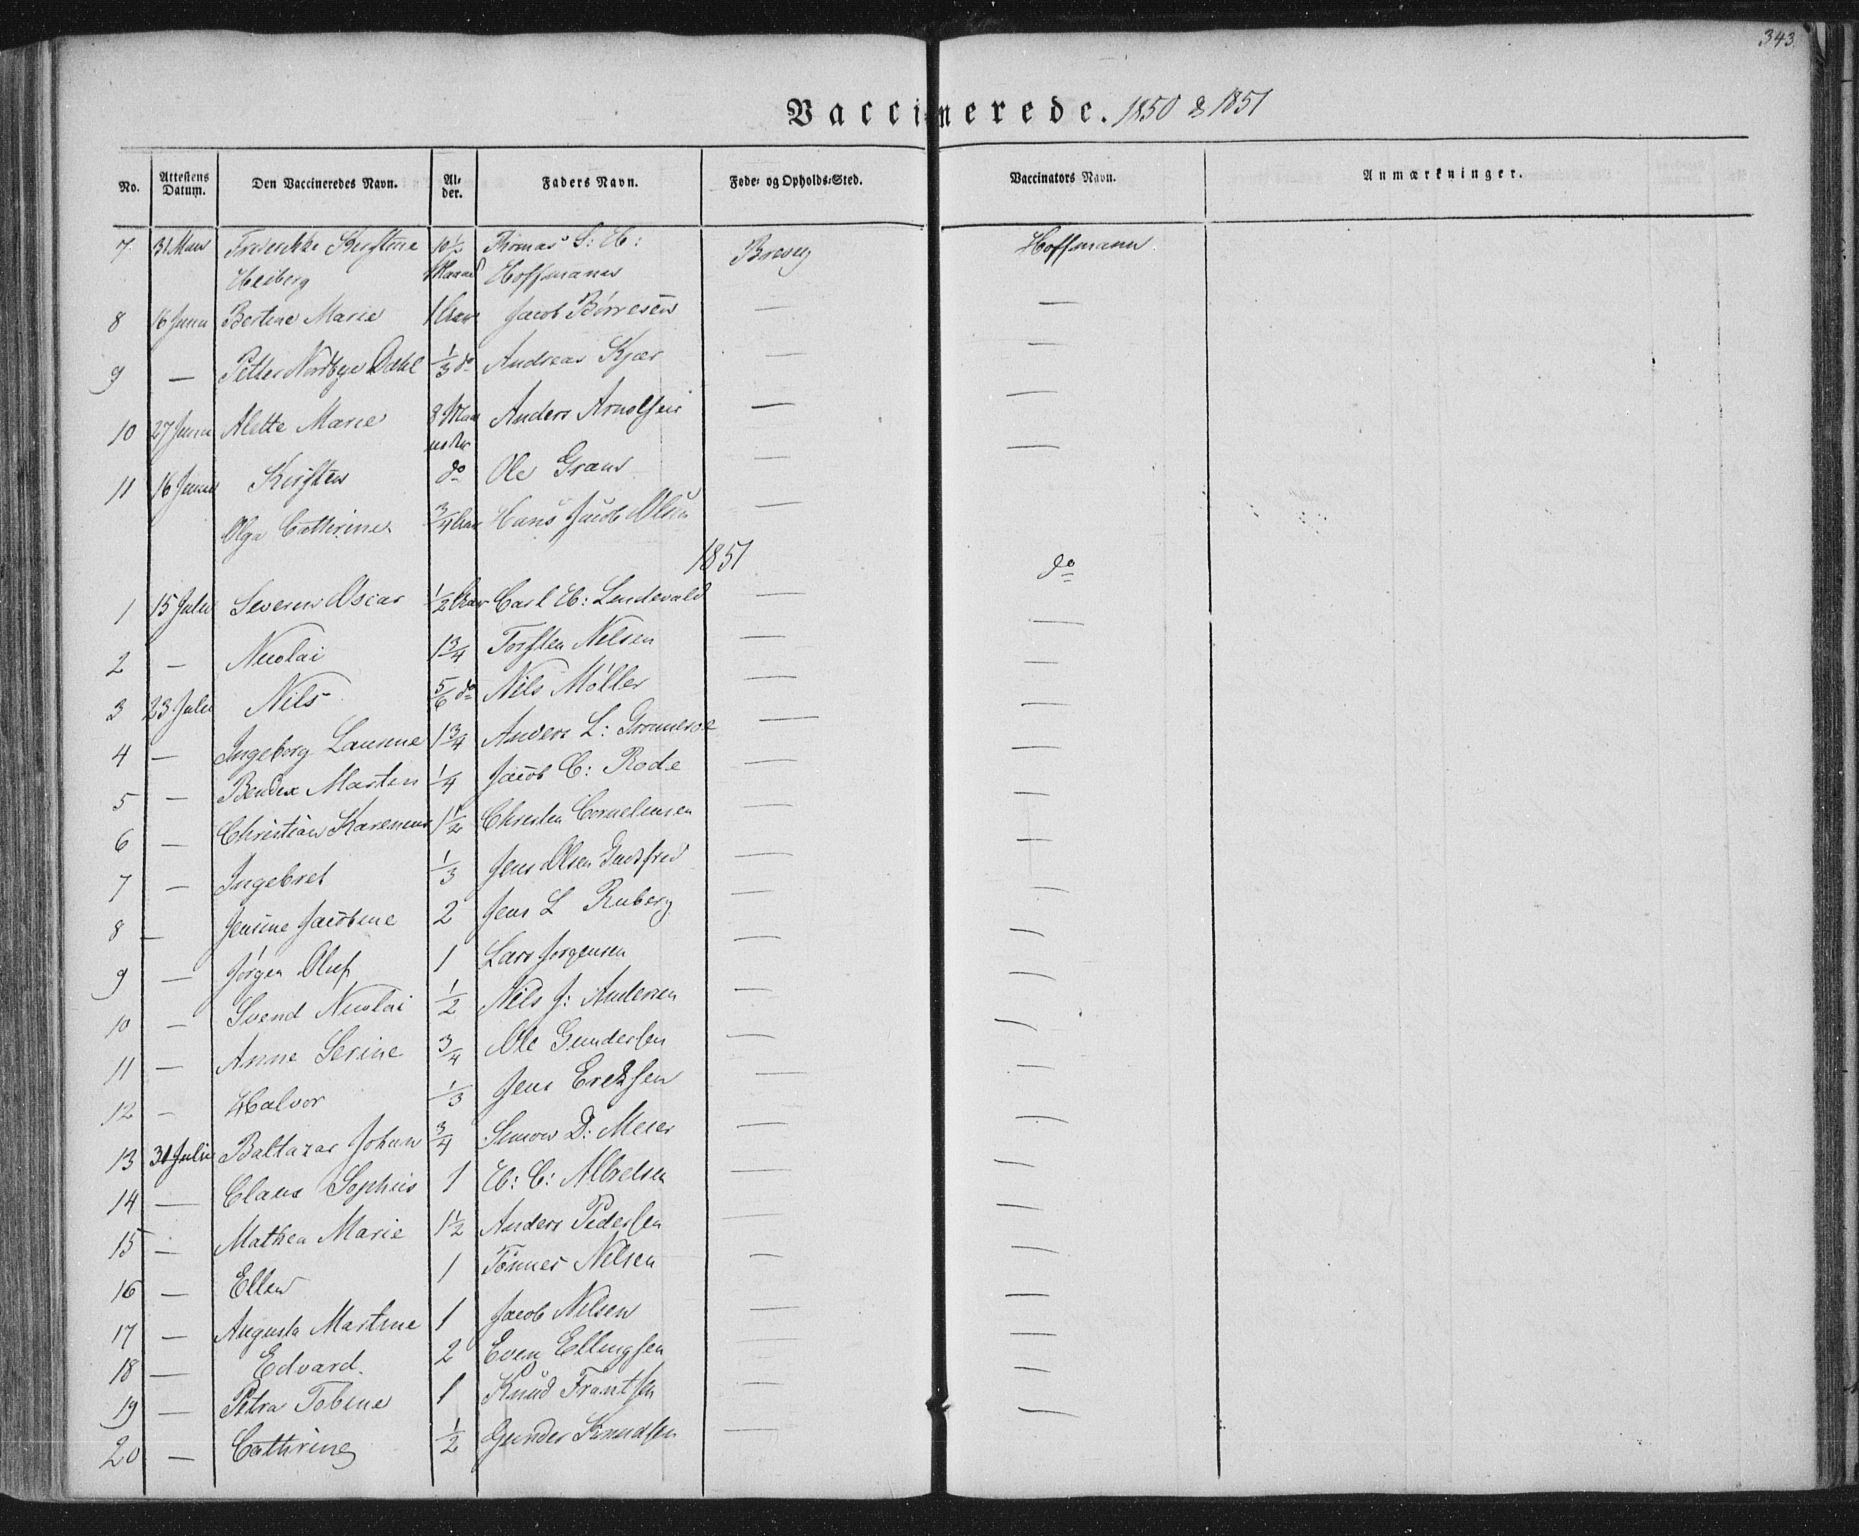 343.
Vaccinerede. 1850 & 1851
No. Attestens Datum. Den Vaccineredes Navn. Al-der. Faders Navn. Føde- og Opholds-Sted. Vaccinators Navn. Anmærkninger.
7 31 Mars Frederikke Kirstine 10½ Thomas S: H: Brevig Hoffmann
Heiberg Maaned Hoffmann
8 16 Juni Bertine Marie 1 Aar Jacob Börresen — —
9 — Petter Nordbye Dahl 1/3 do Andreas Kjær — —
10 27 Juni Alette Marie 8 Maaneder Anders Arnolsen — —
11 16 Juni Kirsten do Ole Grave — —
Olga Cathrine ¾ Aar Hans Jacob Olsen —
1851
1 15 Juli Severin Oscar ½ Aar Carl H: Lindevald — do
2 — Nicolai 1¾ Torsten Nilsen — —
3 23 Juli Nils 5/6 do Nils Möller — —
4 — Ingeborg Laurine 1¾ Anders L: — —
5 — Bendix Martin ¼ Jacob C: Rode — —
6 — Christian 1½ Christen Cornelinsen —
7 — Ingebret 1/3 Jens Olsen — —
8 — Jensine Jacobine 2 Jens L Ruberg — —
9 — Jörgen Oluf 1 Lars Jörgensen — —
10 — Svend Nicolai ½ Nils J: Andersen — —
11 — Anne Serine ¾ Ole Gundersen — —
12 — Halvor 1/3 Jens Eriksen — —
13 31 Juli Baltazar Johan ¾ Simon D: Meier — —
14 — Claus Sophus 1 H: C: Albretsen — —
15 — Mathea Marie 1½ Anders Pedersen — —
16 — Ellen 1 Tönnes Nilsen — —
17 — Augusta Martine 1 Jacob Nilsen — —
18 — Edvard 2 Even Ellingsen — —
19 — Petra Tobine 1 Knud Frantsen — —
20 — Cathrine ½ Gunder Knudsen — —